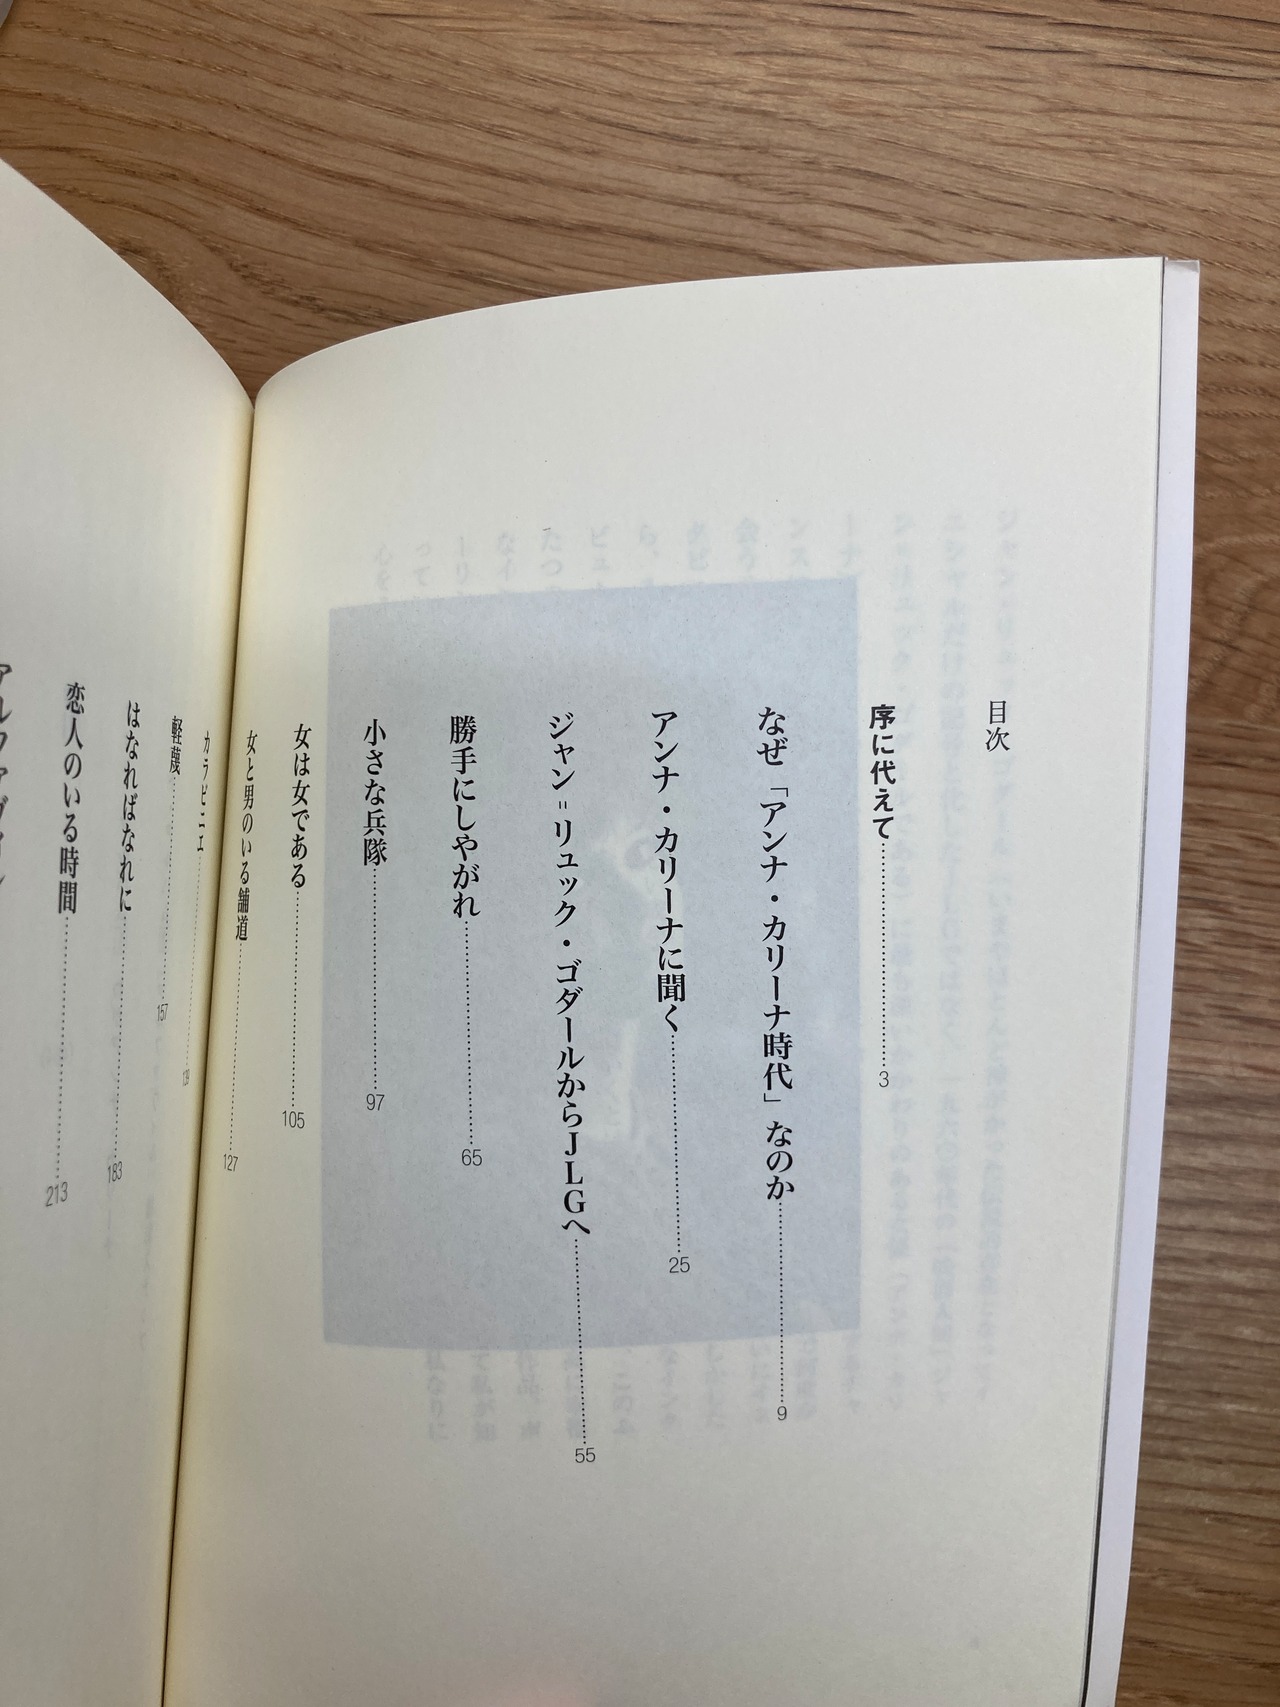 目次
序に代えて……………3
なぜ「アンナ・カリーナ時代」なのか……………9
アンナ・カリーナに聞く……………25
ジャン=リュック・ゴダールからJLGへ……………55
勝手にしやがれ……………65
小さな兵隊……………97
女は女である……………105
女と男のいる舗道……………127
カラビニエ……………139
軽蔑……………157
はなればなれに……………183
恋人のいる時間……………213